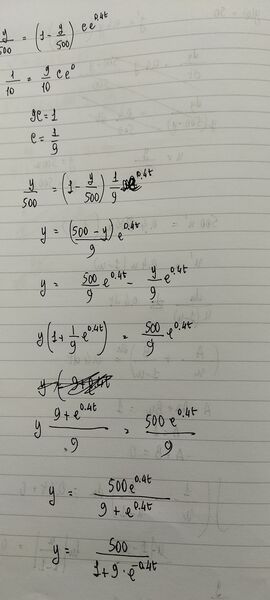 y/500 = (1 - y/500) c e^0.4t
1/10 = 9/10 c e^0
9c = 1
c = 1/9
y/500 = (1 - y/500) 1/9 e^0.4t
y = (500 - y)/9 e^0.4t
y = 500/9 e^0.4t - y/9 e^0.4t
y(1 + 1/9 e^0.4t) = 500/9 e^0.4t
y (9 + e^0.4t)/9 = 500 e^0.4t/9
y = 500 e^0.4t/(9 + e^0.4t)
y = 500/(1 + 9 · e^-0.4t)